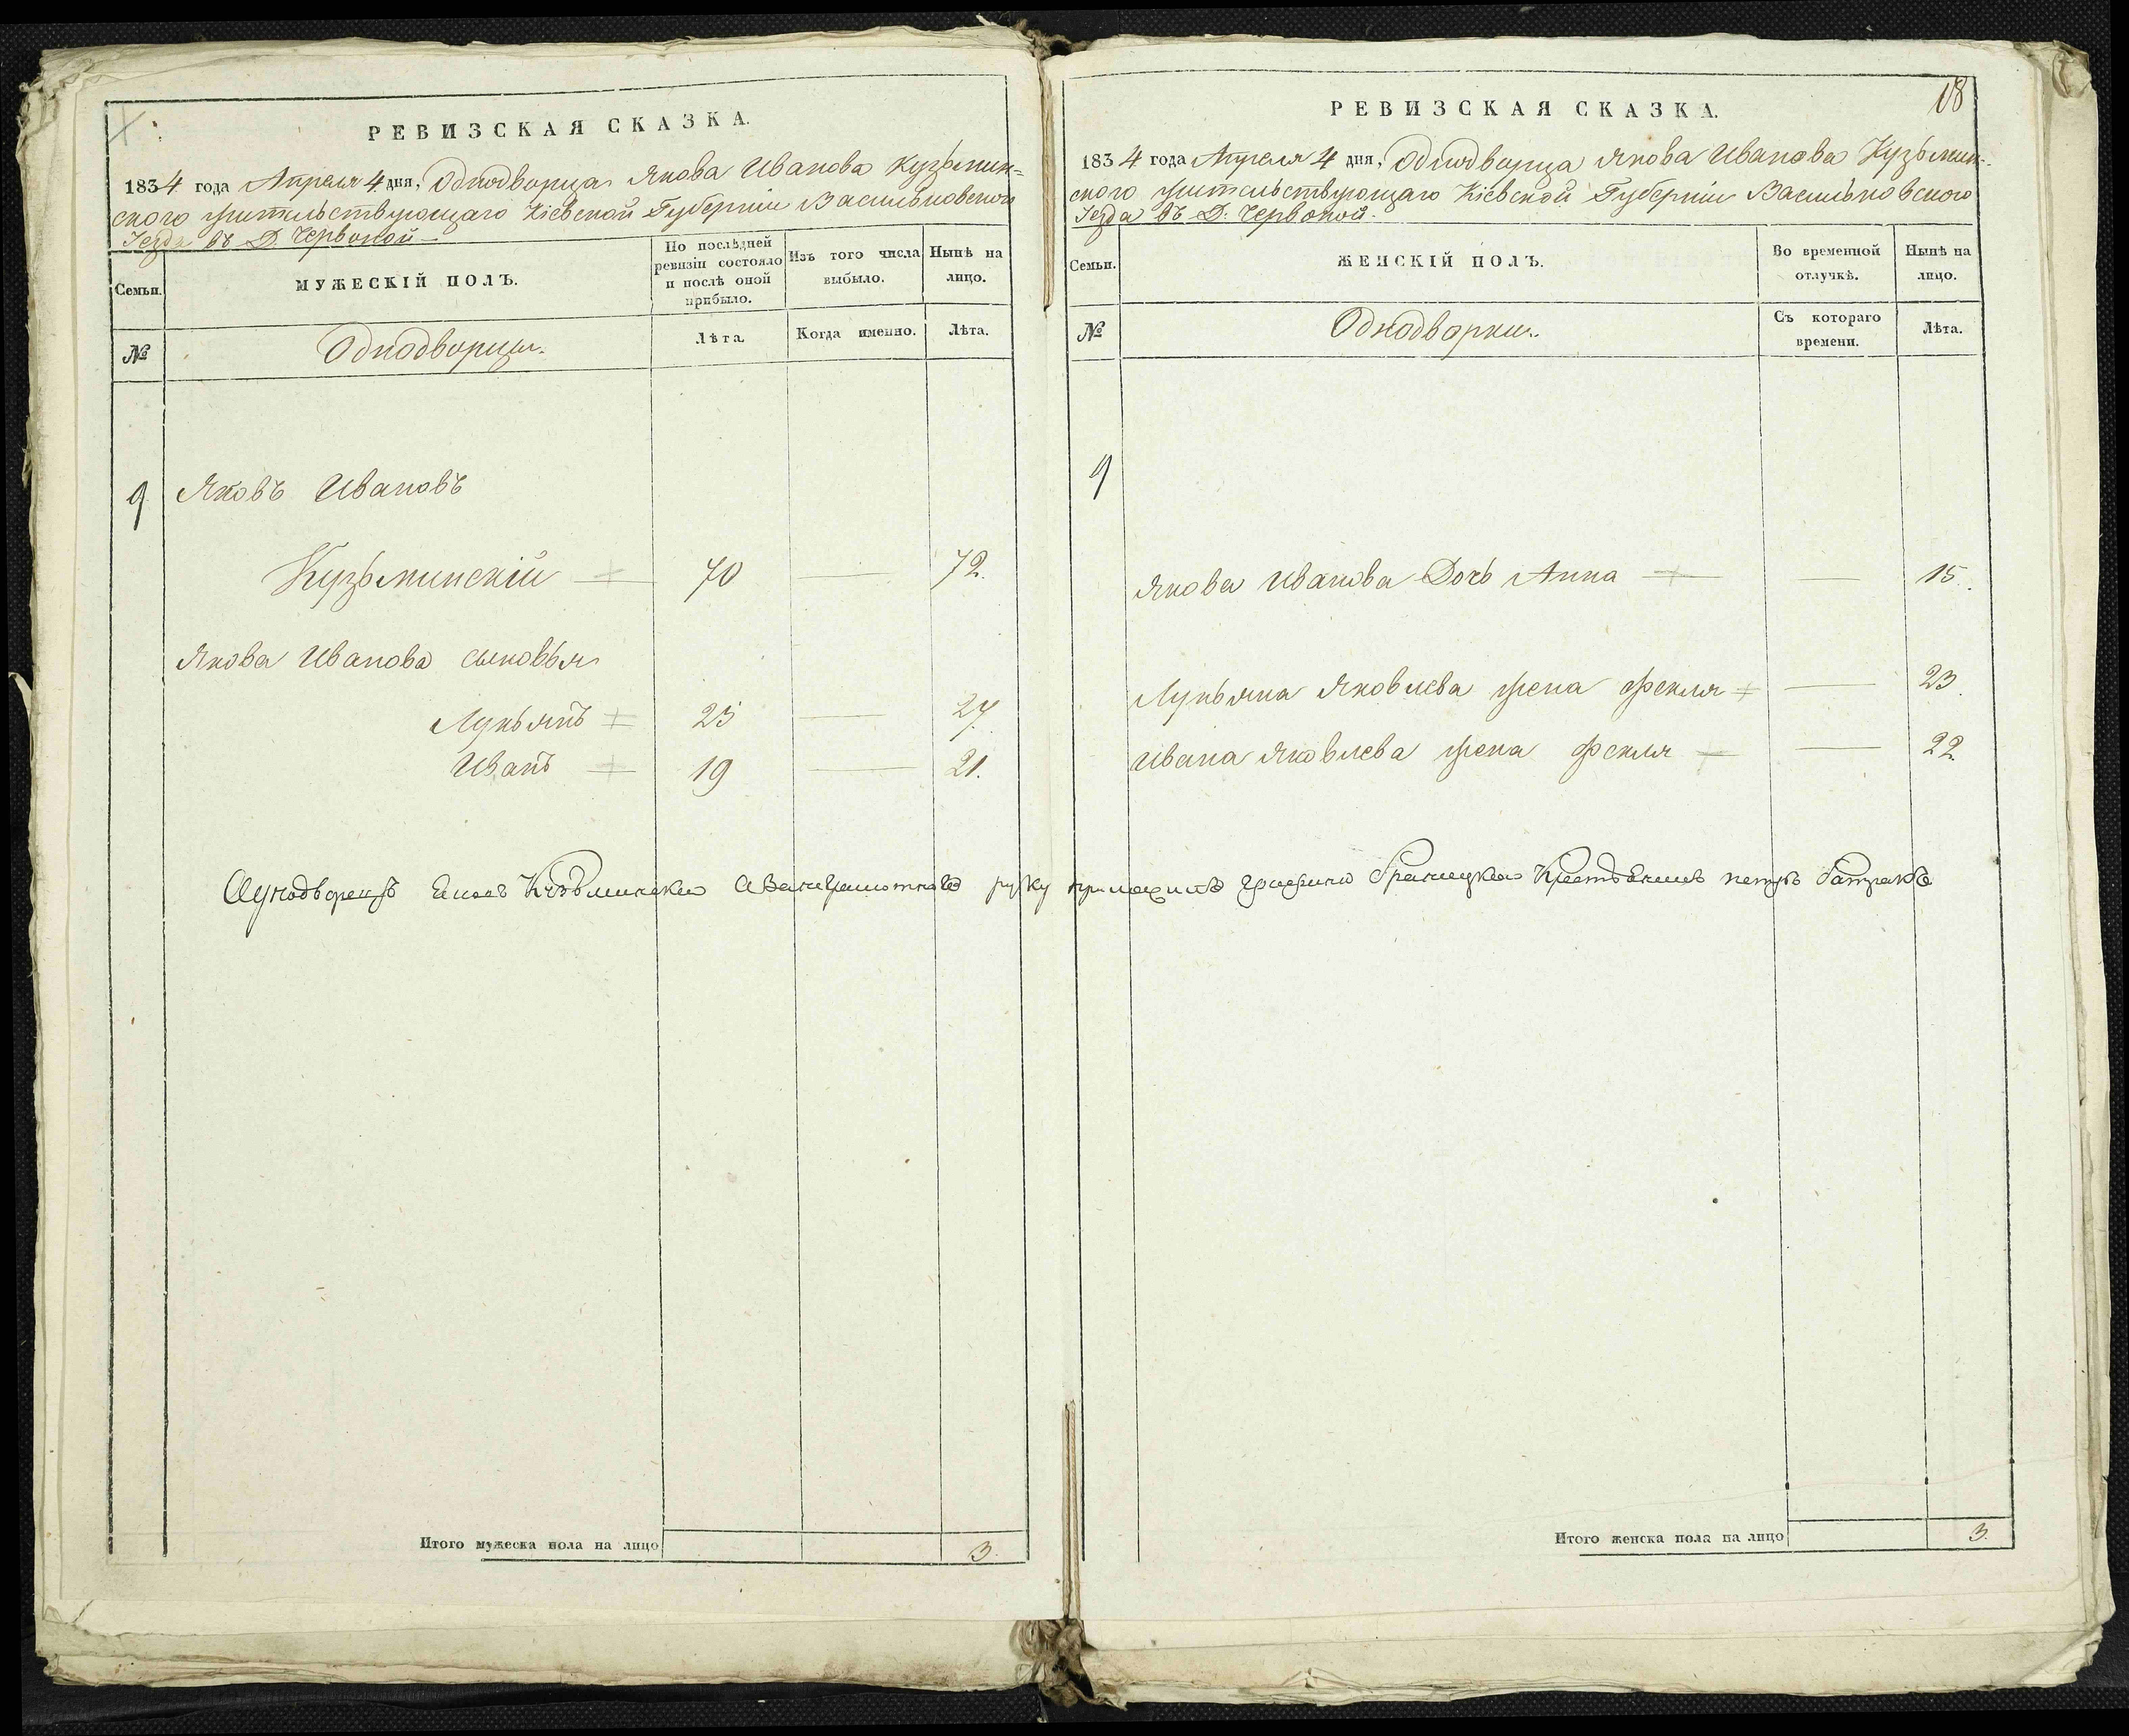 РЕВИЗСКАЯ СКАЗКА.
1834 года Апреля 4 дня, Однодворца Якова Иванова Кузьмин=
ского жительствующаго Кіевской Губерніи Васильковского
Уезда въ Д. Червоной
Семьи.
МУЖЕСКІЙ ПОЛЪ.
По послѣдней ревизіи состояло и послѣ оной прибыло.
Изъ того числа выбыло.
Нынѣ на лицо.
№
Однодворцы.
Лѣта
Когда именно.
Лѣта.
9 Яковъ Ивановъ
Кузьминскій 70 — 72.
Якова Иванова сыновья
Лукьянъ 25 — 27.
Иванъ 19 — 21.
Итого мужеска пола на лицо 3.
18
РЕВИЗСКАЯ СКАЗКА.
1834 года Апреля 4 дня, Однодворца Якова Иванова Кузьмин-
ского жительствующаго Кіевской Губерніи Васильковского
Уезда въ Д. Червоной.
Семьи.
ЖЕНСКІЙ ПОЛЪ.
Во временной отлучкѣ.
Нынѣ на лицо.
№
Однодворки.
Съ котораго времени.
Лѣта.
9
Якова Иванова Дочь Анна — 15.
Лукьяна Яковлева жена Фекля — 23.
Ивана Яковлева жена Фекля — 22.
руку приложилъ петръ
Итого женска пола на лицо 3.